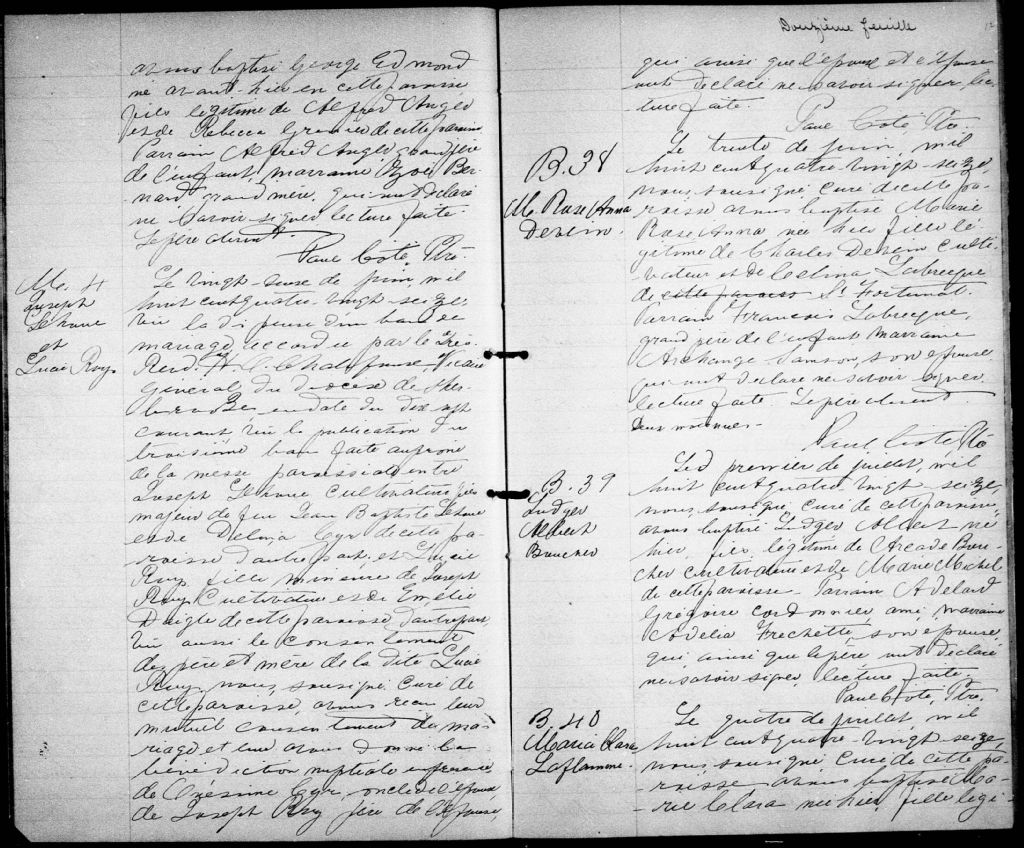 avons baptisé George Edmond
né avant-hier en cette paroisse
fils légitime de Alfred Anglo
et de Rebecca Grenier de cette paroisse
Parrain Alfred Anglo grand père
de l'enfant, marraine Ber-
nard, grand mère, qui ont déclaré
ne savoir signer lecture faite.
Le père absent.
Paul Coté, Ptre.
M. 4
Joseph
et
Lucie Roy
Le vingt deux de juin, mil
huit cent quatre-vingt-seize,
vu la dispense d'un ban de
mariage accordée par le Très
Révd. Chalifoux Vicaire
Général du diocèse de Sher-
brooke en date du dix sept
courant vu la publication du
troisième ban faite au prone
de la messe paroissiale entre
Joseph cultivateur fils
majeur de feu Jean Baptiste
et de Delima Cyr de cette pa-
roisse d'autre part, et Lucie
Roy, fille mineure de Joseph
Roy cultivateur et de Emélie
Daigle de cette paroisse, d'autre part
vu aussi le consentement
des père et mère de la dite Lucie
Roy, nous, soussigné, curé de
cette paroisse, avons reçu leur
mutuel consentement de ma-
riage et leur avons donné la
bénédiction nuptiale en présence
de Onésime Cyr, oncle de l'époux
de Joseph Roy père de l'épouse,
Douzième feuille
12
qui ainsi que l'épouse et l'époux
ont déclaré ne savoir signer, lec-
ture faite.
Paul Coté, Ptre.
B. 38
M. Rose Anna
Le trente de juin, mil
huit cent quatre-vingt-seize,
nous, soussigné curé de cette pa-
roisse avons baptisé Marie
Rose Anna née hier fille lé-
gitime de Charles culti-
vateur et de Celina Labrecque
de cette paroisse St Fortunat.
Parrain François Labrecque,
grand père de l'enfant marraine
Archange Samson, son épouse
qui ont déclaré ne savoir signer
lecture faite. Le père absent.
Deux mots nuls -
Paul Coté, Ptre
B. 39
Ludger
Albert
Boucher
Le premier de juillet, mil
huit cent quatre-vingt-seize,
nous, soussigné, curé de cette paroisse,
avons baptisé Ludger Albert né
hier, fils légitime de Arcade Bou-
cher cultivateur et de Marie Michel
de cette paroisse - Parrain Adelard
Grégoire cordonnier, ami, marraine
Adelia Frechette, son épouse,
qui ainsi que le père ont déclaré
ne savoir signer, lecture faite,
Paul Coté, Ptre.
B. 40
Maria Clara
Laflamme.
Le quatre de juillet, mil
huit cent quatre-vingt-seize,
nous, soussigné curé de cette pa-
roisse avons baptisé Ma-
rie Clara née hier, fille légi-